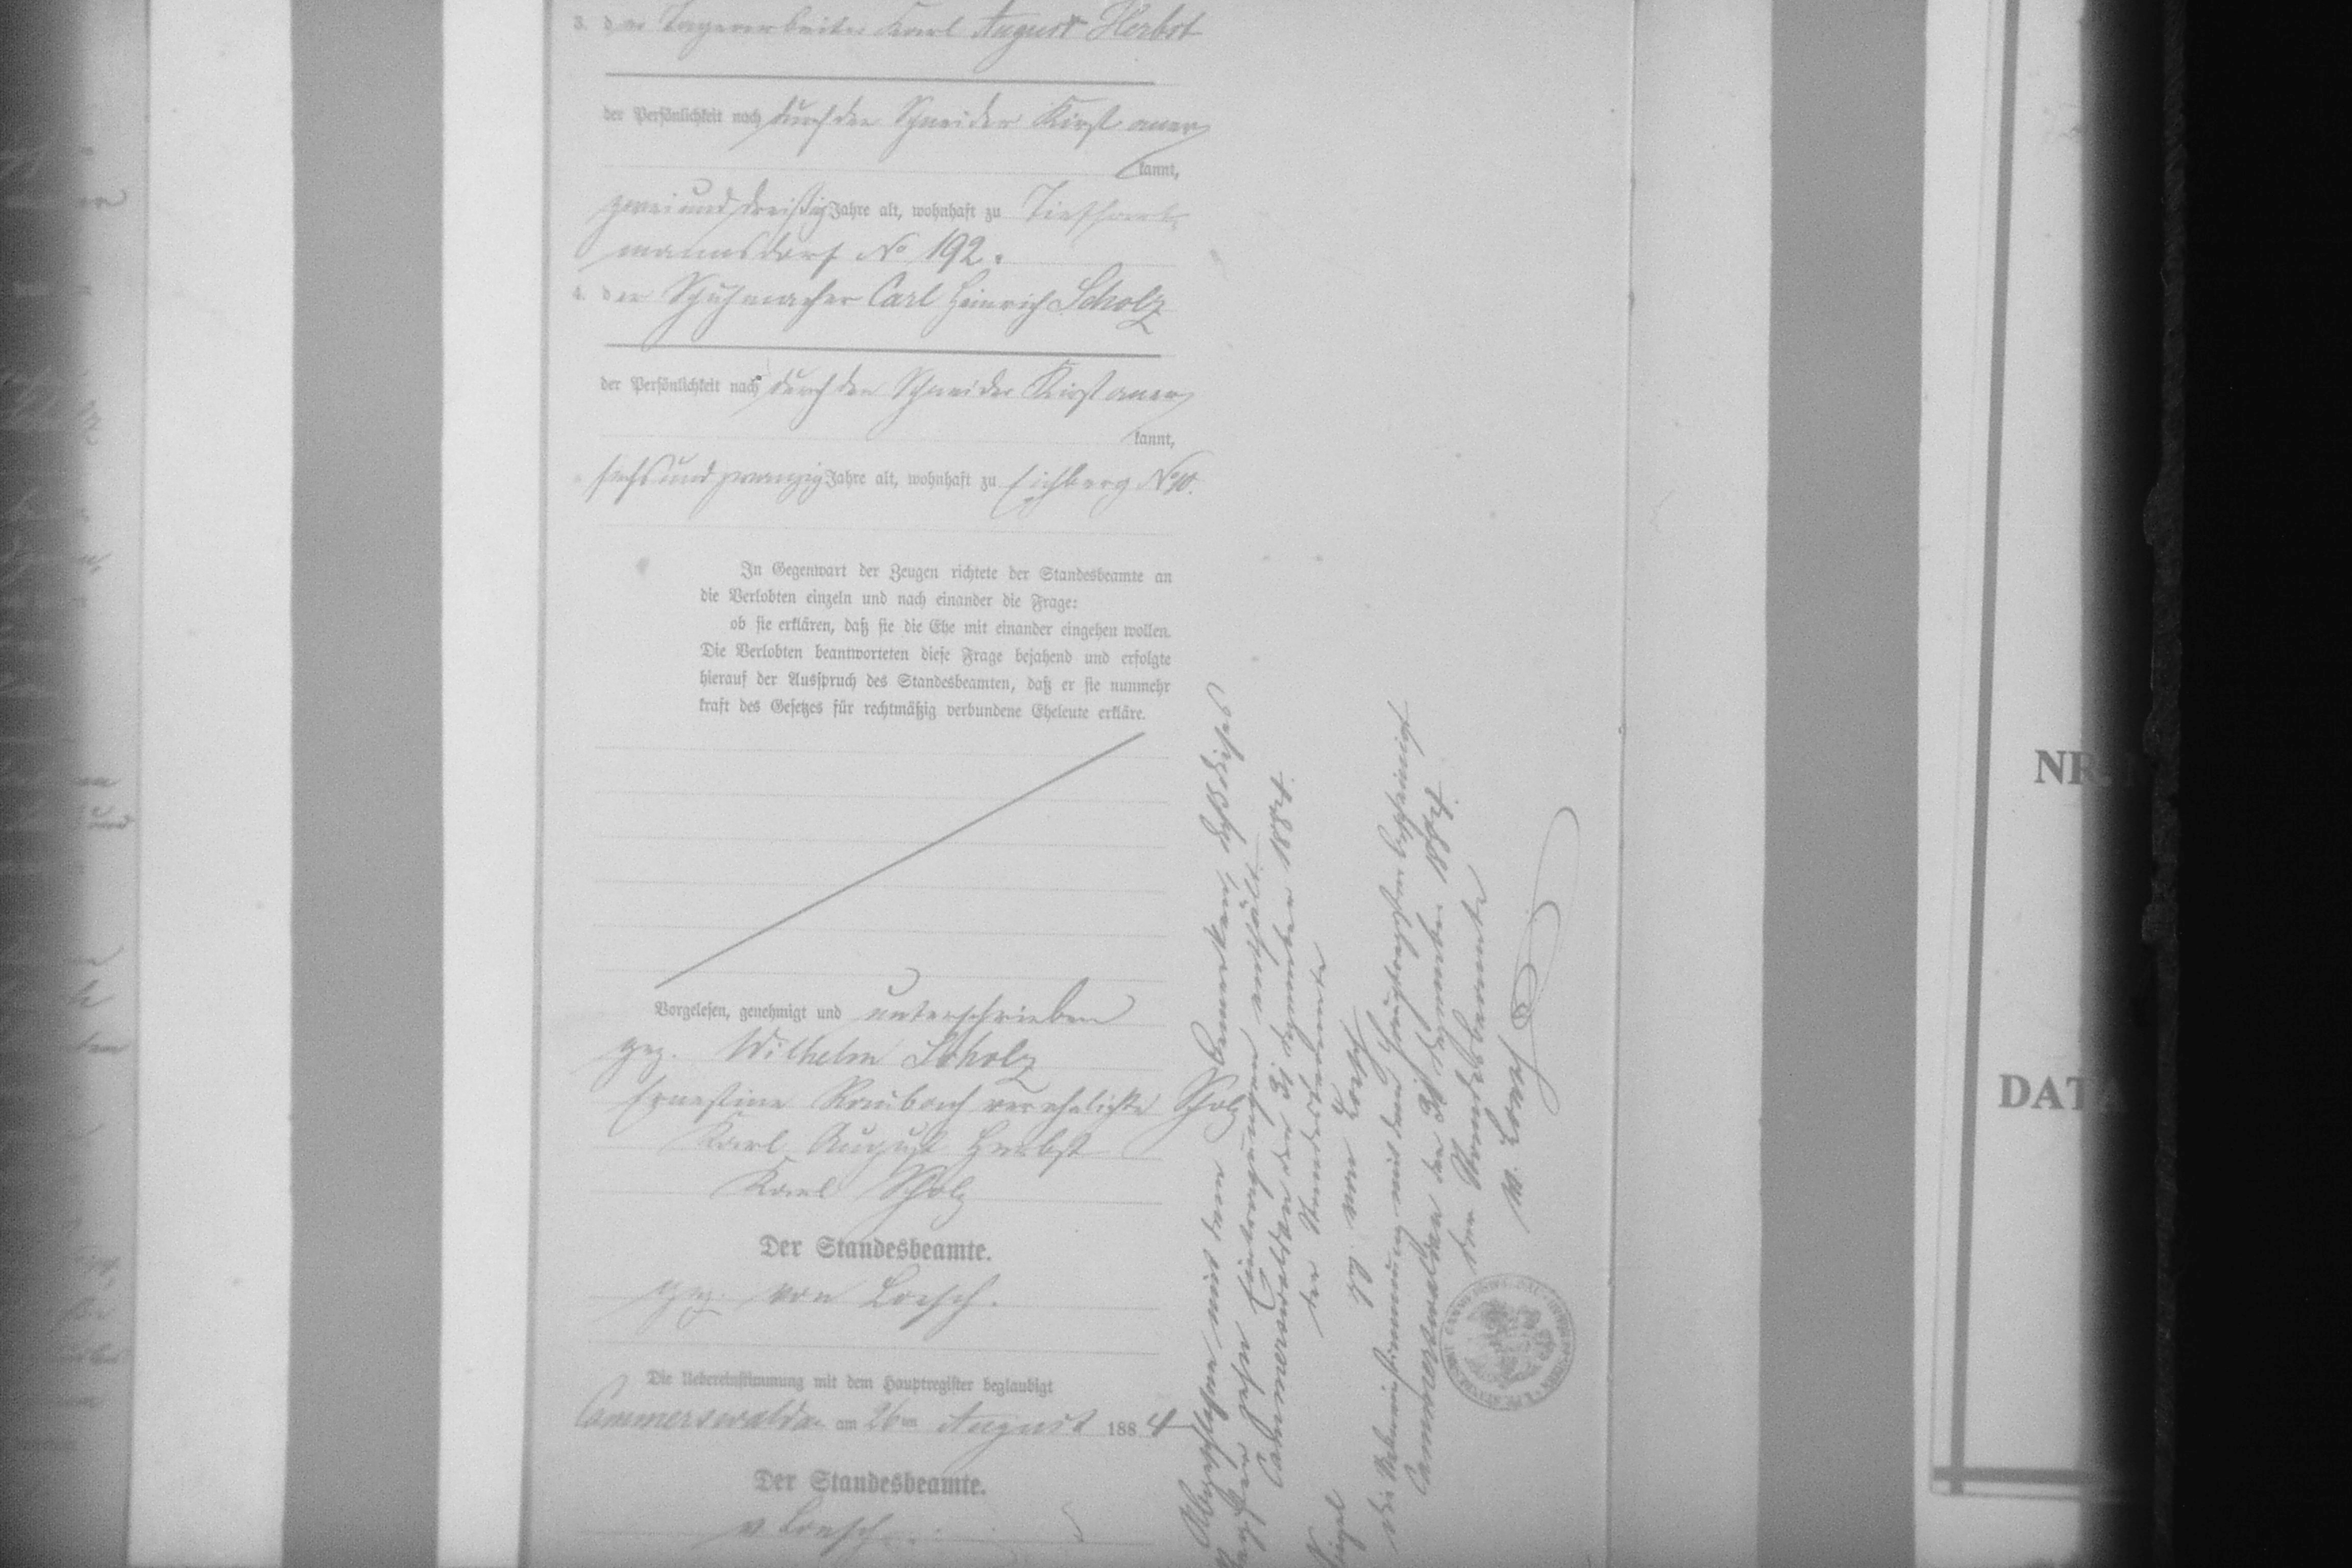 3. der Lagerarbeiter Karl August Herbst
der Persönlichkeit nach durch den Schneider Kirst aner
kannt,
zweiunddreißig Jahre alt, wohnhaft zu Tiefhart=
mannsdorf No 192.
4. der Schuhmacher Carl Heinrich Scholz
der Persönlichkeit nach durch den Schneider Kirst aner
kannt,
sechsundzwanzig Jahre alt, wohnhaft zu Eichberg No 10.
In Gegenwart der Zeugen richtete der Standesbeamte an
die Verlobten einzeln und nach einander die Frage:
ob sie erklären, daß sie die Ehe mit einander eingehen wollen.
Die Verlobten beantworteten diese Frage bejahend und erfolgte
hierauf der Ausspruch des Standesbeamten, daß er sie nunmehr
kraft des Gesetzes für rechtmäßig verbundene Eheleute erkläre.
Vorgelesen, genehmigt und unterschrieben
gez. Wilhelm Scholz
Ernestine Raubach verehelichte Scholz
Karl August Herbst
Karl Scholz
Der Standesbeamte.
gez. von Loesch.
Die Uebereinstimmung mit dem Hauptregister beglaubigt
Cammerswaldau am 26ten August 1884
Der Standesbeamte.
v Loesch.
Abgeschlossen mit dem Bemerken, daß dieses
zehn Eintragungen enthält.
Cammerswaldau den 31 Dezember 1884.
der Standesbeamte
gez. von Loesch
Siegel
Die Uebereinstimmung mit dem Hauptregister bescheinigt
Cammerswaldau den 31 Dezember 1884.
der Standesbeamte
v. Loesch
NR
DATA